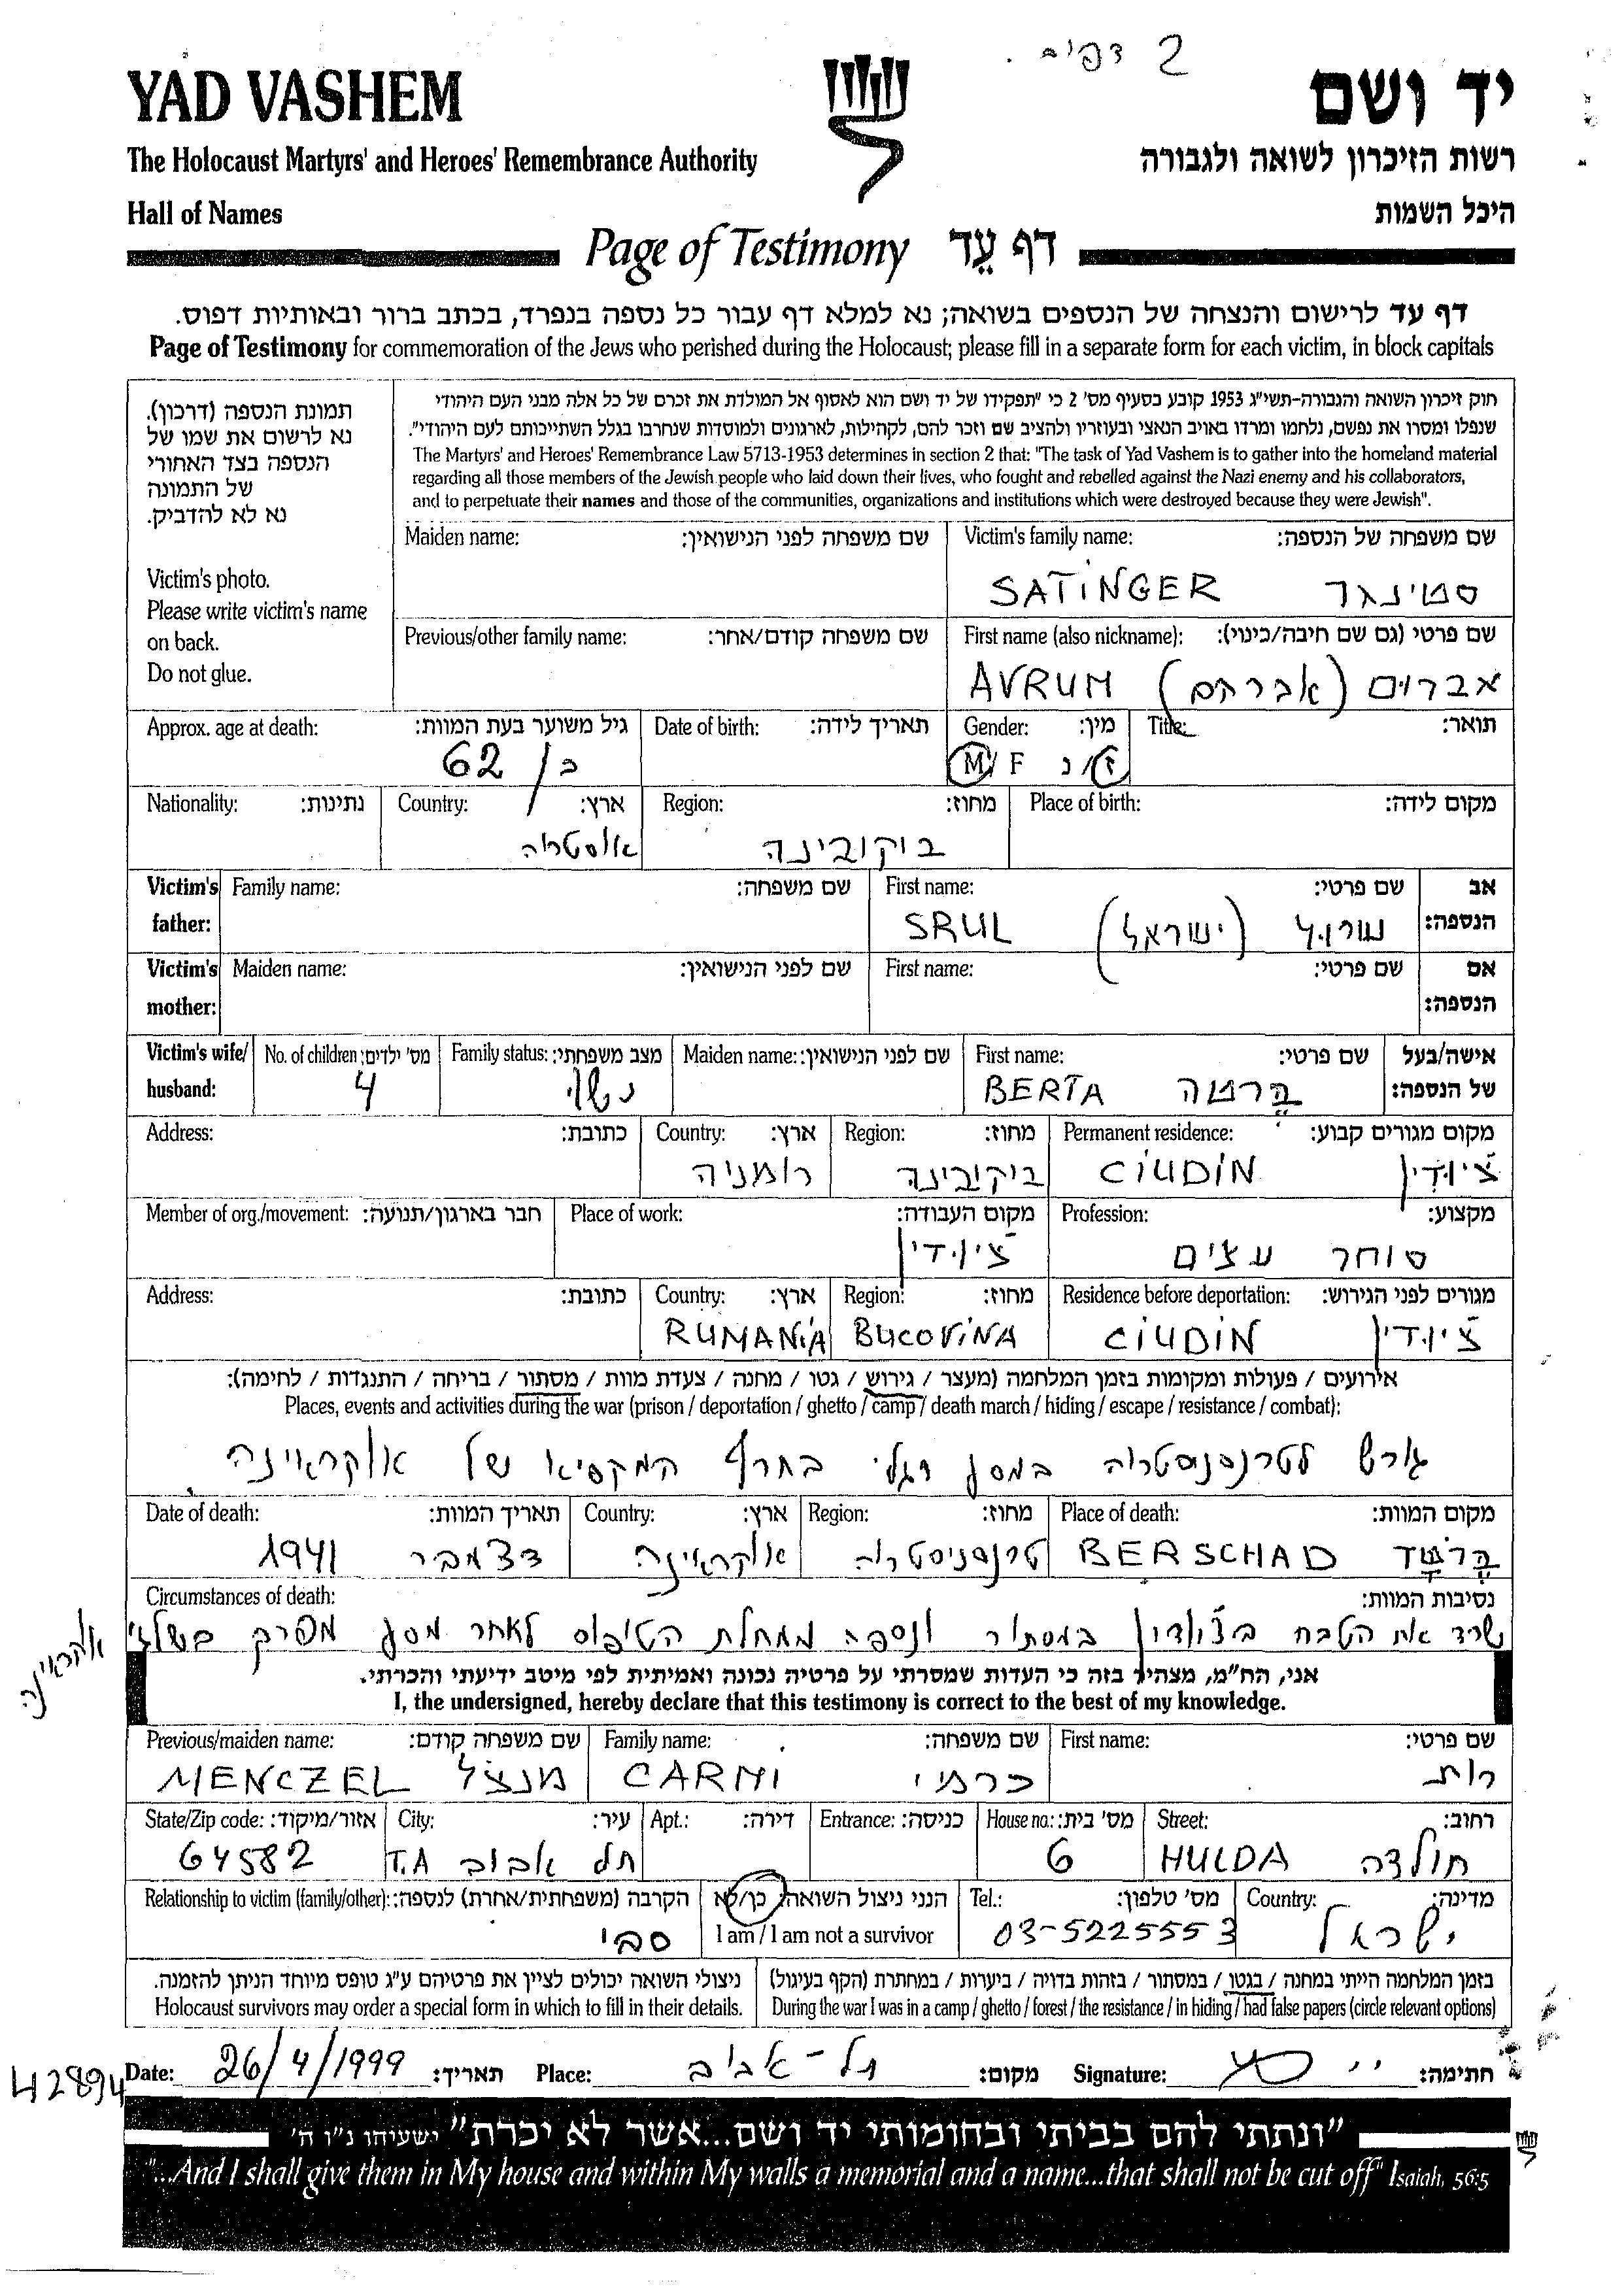 2 דפים.
YAD VASHEM
יד ושם
The Holocaust Martyrs' and Heroes' Remembrance Authority
רשות הזיכרון לשואה ולגבורה
Hall of Names
היכל השמות
Page of Testimony דף עֵד
דף עד לרישום והנצחה של הנספים בשואה; נא למלא דף עבור כל נספה בנפרד, בכתב ברור ובאותיות דפוס.
Page of Testimony for commemoration of the Jews who perished during the Holocaust; please fill in a separate form for each victim, in block capitals
תמונת הנספה (דרכון).
נא לרשום את שמו של
הנספה בצד האחורי
של התמונה
נא לא להדביק.
Victim's photo.
Please write victim's name
on back.
Do not glue.
חוק זיכרון השואה והגבורה-תשי"ג 1953 קובע בסעיף מס' 2 כי "תפקידו של יד ושם הוא לאסוף אל המולדת את זכרם של כל אלה מבני העם היהודי
שנפלו ומסרו את נפשם, נלחמו ומרדו באויב הנאצי ובעוזריו ולהציב שם וזכר להם, לקהילות, לארגונים ולמוסדות שנחרבו בגלל השתייכותם לעם היהודי".
The Martyrs' and Heroes' Remembrance Law 5713-1953 determines in section 2 that: "The task of Yad Vashem is to gather into the homeland material
regarding all those members of the Jewish people who laid down their lives, who fought and rebelled against the Nazi enemy and his collaborators,
and to perpetuate their names and those of the communities, organizations and institutions which were destroyed because they were Jewish".
Maiden name: שם משפחה לפני הנישואין: Victim's family name: שם משפחה של הנספה:
SATINGER סטינגר
Previous/other family name: שם משפחה קודם/אחר: First name (also nickname): שם פרטי (גם שם חיבה/כינוי):
AVRUM (אברהם) אברום
Approx. age at death: גיל משוער בעת המוות: Date of birth: תאריך לידה: Gender: מין: Title: תואר:
62 בן M/F ז/נ
Nationality: נתינות: Country: ארץ: Region: מחוז: Place of birth: מקום לידה:
אוסטריה בוקובינה
Victim's father: Family name: שם משפחה: First name: שם פרטי: אב הנספה:
SRUL (ישראל) שרול
Victim's mother: Maiden name: שם לפני הנישואין: First name: שם פרטי: אם הנספה:
Victim's wife/ husband: No. of children: מס' ילדים: Family status: מצב משפחתי: Maiden name: שם לפני הנישואין: First name: שם פרטי: אישה/בעל של הנספה:
4 נשוי BERTA ברטה
Address: כתובת: Country: ארץ: Region: מחוז: Permanent residence: מקום מגורים קבוע:
רומניה בוקובינה CIUDIN צ'ודין
Member of org./movement: חבר בארגון/תנועה: Place of work: מקום העבודה: Profession: מקצוע:
צ'ודין סוחר עצים
Address: כתובת: Country: ארץ: Region: מחוז: Residence before deportation: מגורים לפני הגירוש:
RUMANIA BUCOVINA CIUDIN צ'ודין
אירועים / פעולות ומקומות בזמן המלחמה (מעצר / גירוש / גטו / מחנה / צעדת מוות / מסתור / בריחה / התנגדות / לחימה):
Places, events and activities during the war (prison / deportation / ghetto / camp / death march / hiding / escape / resistance / combat):
גורש לטרנסניסטריה במסע רגלי בחורף המקפיא של אוקראינה
Date of death: תאריך המוות: Country: ארץ: Region: מחוז: Place of death: מקום המוות:
דצמבר 1941 אוקראינה טרנסניסטריה BERSCHAD ברשד
Circumstances of death: נסיבות המוות:
שרד את הטבח בצ'ודין במסתור ונספה ממחלת הטיפוס לאחר מסע מפרק בשלגי
אוקראינה
אני, הח"מ, מצהיר בזה כי העדות שמסרתי על פרטיה נכונה ואמיתית לפי מיטב ידיעתי והכרתי.
I, the undersigned, hereby declare that this testimony is correct to the best of my knowledge.
Previous/maiden name: שם משפחה קודם: Family name: שם משפחה: First name: שם פרטי:
MENCZEL מנצל CARMI כרמי רות
State/Zip code: אזור/מיקוד: City: עיר: Apt.: דירה: Entrance: כניסה: House no.: מס' בית: Street: רחוב:
64582 T.A תל אביב 6 HULDA חולדה
Relationship to victim (family/other): הקרבה (משפחתית/אחרת) לנספה: הנני ניצול השואה: כן/לא Tel.: מס' טלפון: Country: מדינה:
סבי I am / I am not a survivor 03-5225553 ישראל
ניצולי השואה יכולים לציין את פרטיהם ע"ג טופס מיוחד הניתן להזמנה. בזמן המלחמה הייתי במחנה / בגטו / במסתור / בזהות בדויה / ביערות / במחתרת (הקף בעיגול)
Holocaust survivors may order a special form in which to fill in their details. During the war I was in a camp / ghetto / forest / the resistance / in hiding / had false papers (circle relevant options)
Date: 26/4/1999 תאריך: Place: תל-אביב מקום: Signature: חתימה:
42894
"ונתתי להם בביתי ובחומותי יד ושם...אשר לא יכרת" ישעיהו נ"ו ה'
"...And I shall give them in My house and within My walls a memorial and a name...that shall not be cut off" Isaiah, 56:5